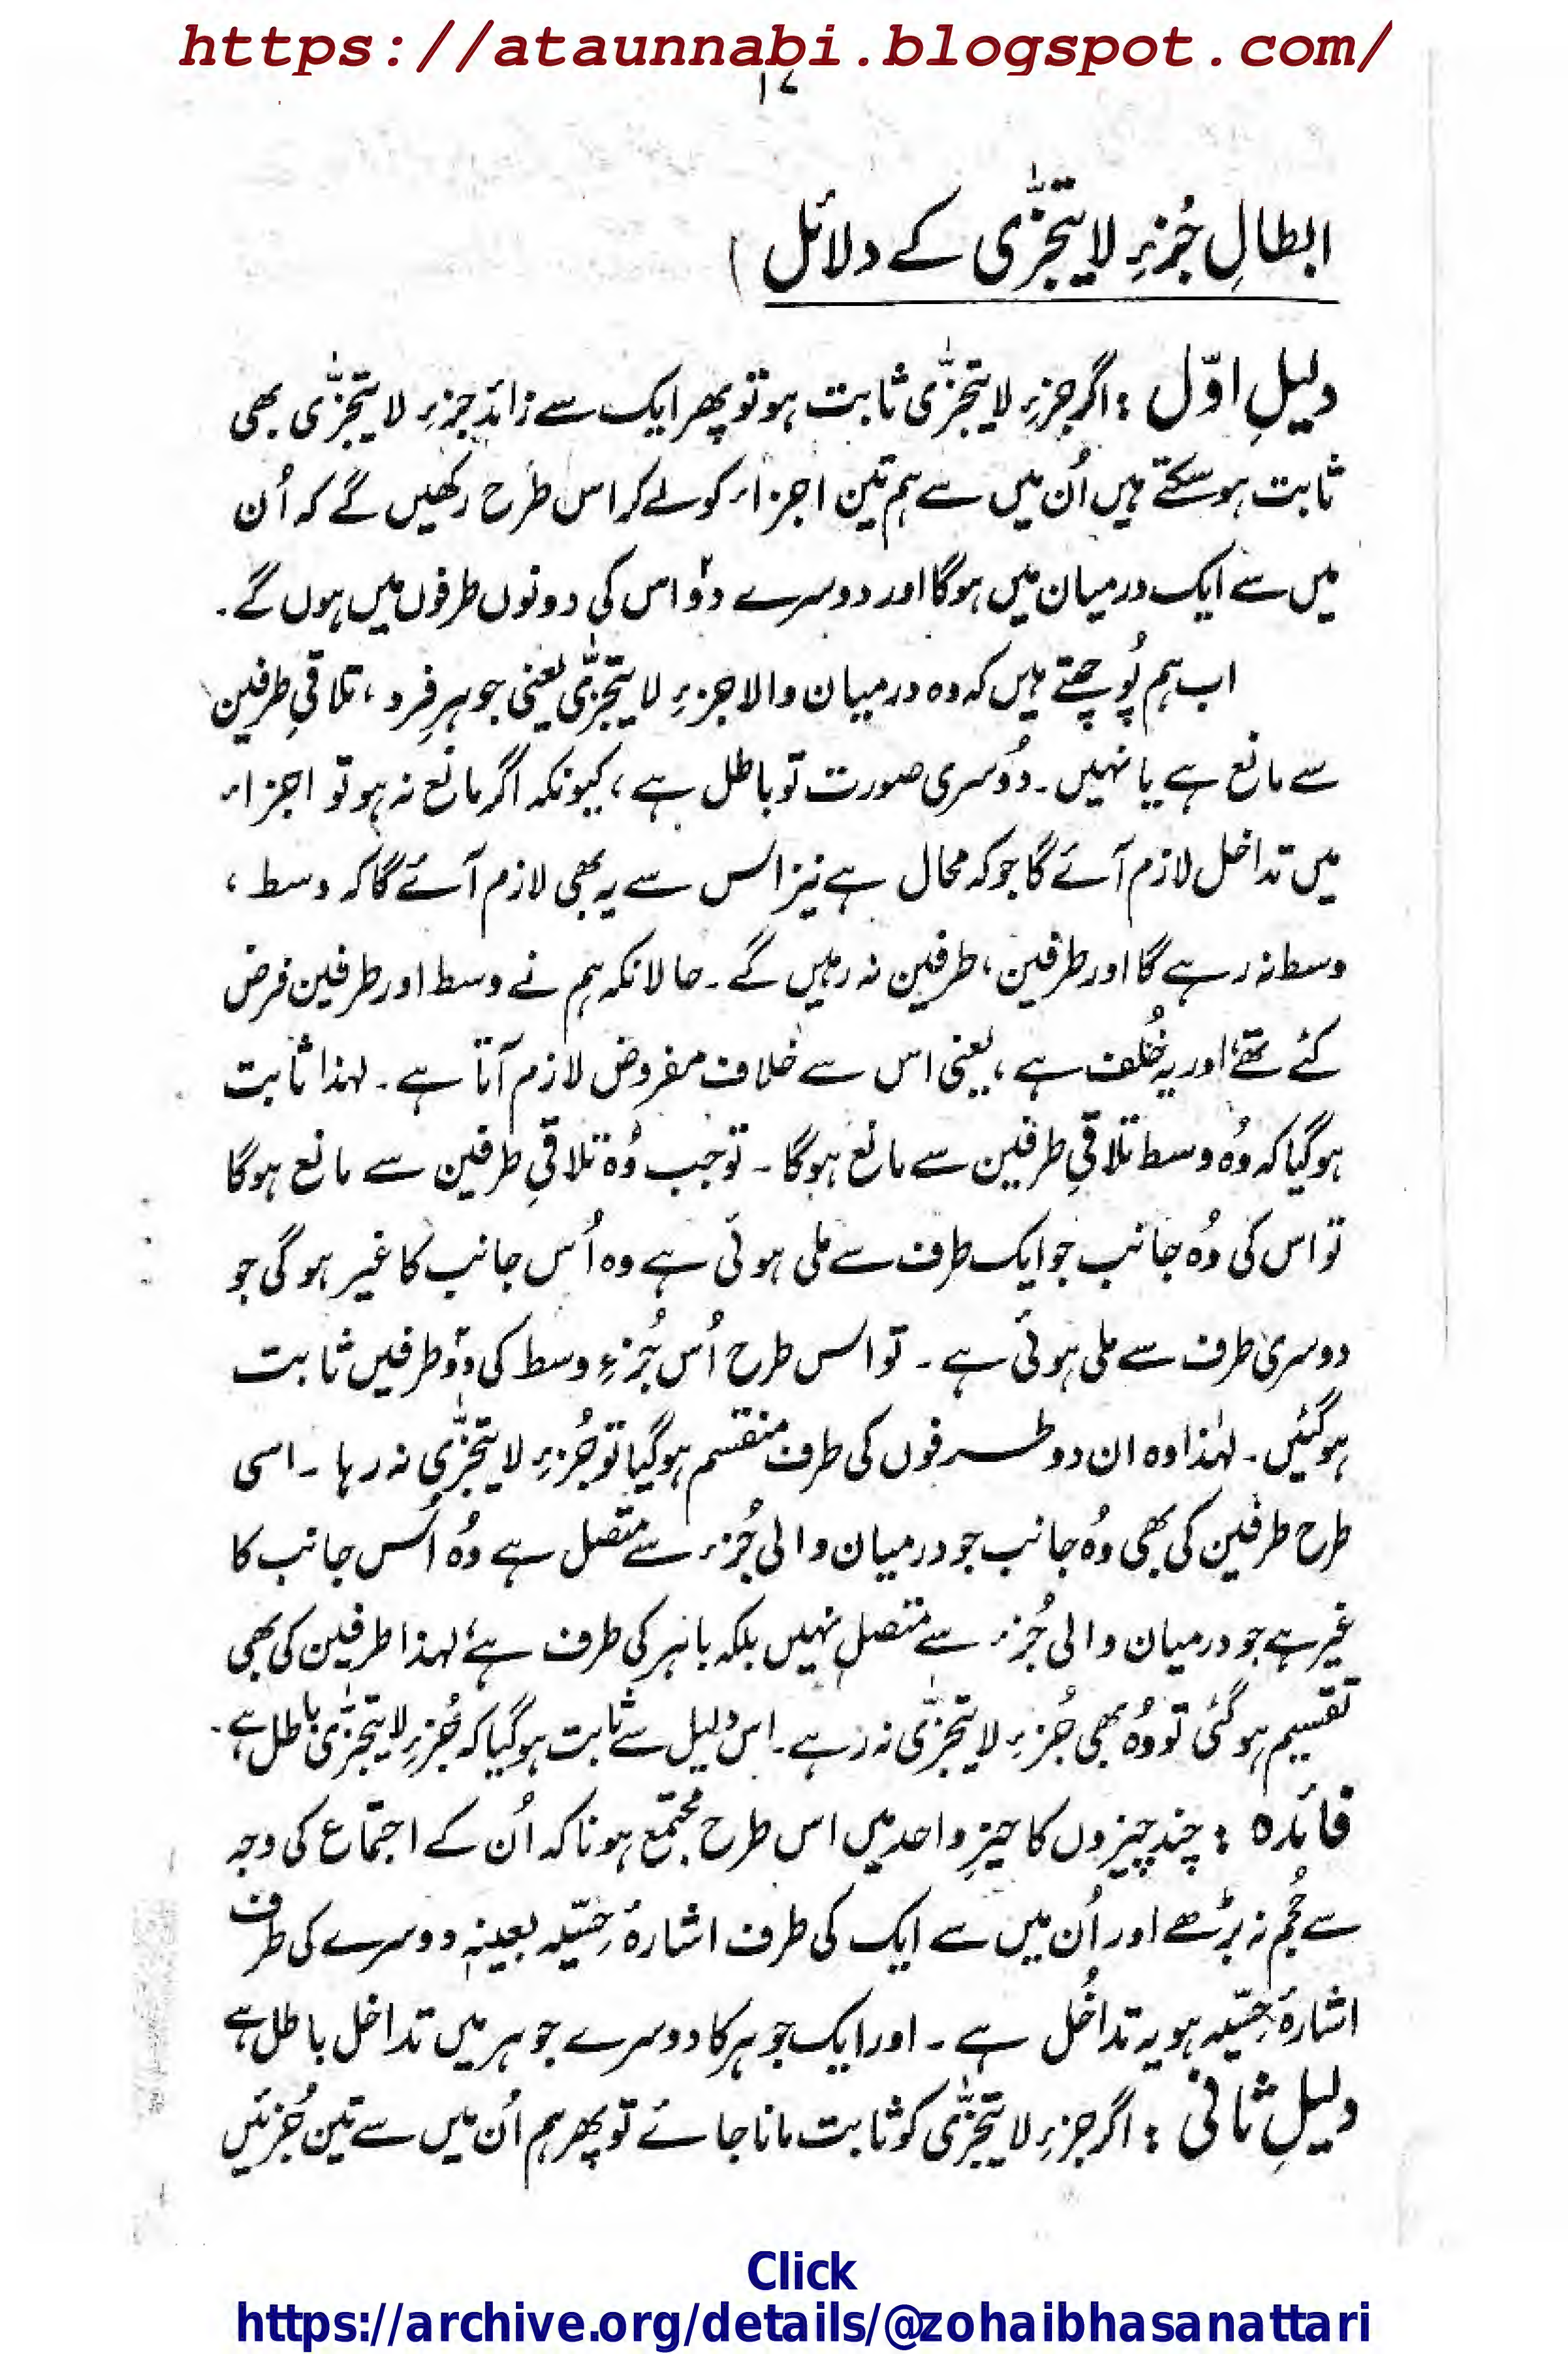 https://ataunnabi.blogspot.com/
۱۷
ابطالِ جُزءِ لا یتجزّٰی کے دلائل )
دلیلِ اوّل : اگر جزءِ لا یتجزّٰی ثابت ہو تو پھر ایک سے زائد جزءِ لا یتجزّٰی بھی
ثابت ہو سکتے ہیں اُن میں سے ہم تین اجزاء کو لے کر اس طرح رکھیں گے کہ اُن
میں سے ایک درمیان میں ہوگا اور دوسرے دو اس کی دونوں طرفوں میں ہوں گے۔
اب ہم پُوچھتے ہیں کہ وہ درمیان والا جزءِ لا یتجزّٰی یعنی جوہرِ فرد ، تلاقیِ طرفین
سے مانع ہے یا نہیں۔ دُوسری صورت تو باطل ہے ، کیونکہ اگر مانع نہ ہو تو اجزاء
میں تداخل لازم آئے گا جو کہ محال ہے نیز اس سے یہ بھی لازم آئے گا کہ وسط ،
وسط نہ رہے گا اور طرفین ، طرفین نہ رہیں گے۔ حالانکہ ہم نے وسط اور طرفین فرض
کئے تھے، اور یہ خُلف ہے ، یعنی اس سے خلاف مفروض لازم آتا ہے۔ لہذا ثابت
ہوگیا کہ وُہ وسط تلاقیِ طرفین سے مانع ہوگا ۔ تو جب وُہ تلاقیِ طرفین سے مانع ہوگا
تو اس کی وُہ جانب جو ایک طرف سے ملی ہوئی ہے وہ اُس جانب کا غیر ہوگی جو
دوسری طرف سے ملی ہوئی ہے ۔ تو اس طرح اُس جُزءِ وسط کی دو طرفیں ثابت
ہوگئیں۔ لہٰذا وہ ان دو طرفوں کی طرف منقسم ہوگیا تو جُزءِ لا یتجزّٰی نہ رہا ۔ اسی
طرح طرفین کی بھی وُہ جانب جو درمیان والی جُزء سے متصل ہے وُہ اُس جانب کا
غیر ہے جو درمیان والی جُزء سے متصل نہیں بلکہ باہر کی طرف ہے، لہذا طرفین کی بھی
تقسیم ہوگئی تو وُہ بھی جُزءِ لا یتجزّٰی نہ رہے۔ اس دلیل سے ثابت ہوگیا کہ جُزءِ لا یتجزّٰی باطل ہے۔
فائدہ : چند چیزوں کا حیّزِ واحد میں اس طرح مجتمع ہونا کہ اُن کے اجتماع کی وجہ
سے حُجم نہ بڑھے اور اُن میں سے ایک کی طرف اشارۂ حِسّیہ بعینہٖ دوسرے کی طرف
اشارۂ حِسّیہ ہو یہ تداخُل ہے ۔ اور ایک جوہر کا دوسرے جوہر میں تداخل باطل ہے
دلیلِ ثانی : اگر جزءِ لا یتجزّٰی کو ثابت مانا جائے تو پھر ہم اُن میں سے تین جُزئیں
Click
https://archive.org/details/@zohaibhasanattari